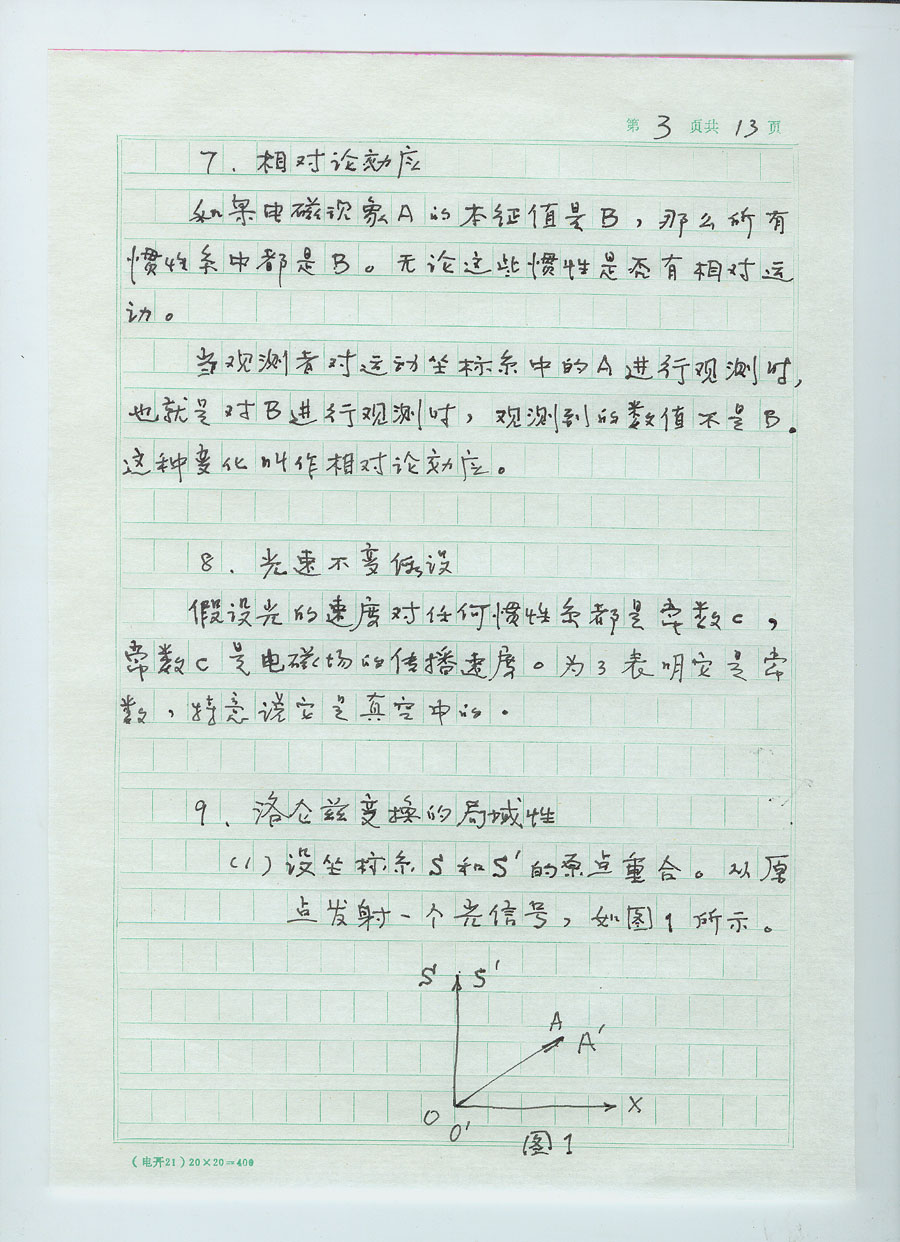 第 3 页共 13 页
7. 相对论効应
如果电磁现象A的本征值是B，那么所有
惯性系中都是B。无论这些惯性是否有相对运
动。
当观测者对运动坐标系中的A进行观测时，
也就是对B进行观测时，观测到的数值不是B。
这种变化叫作相对论効应。
8. 光速不变假设
假设光的速度对任何惯性系都是常数c，
常数c是电磁场的传播速度。为了表明它是常
数，特意说它是真空中的。
9. 洛仑兹变换的局域性
(1) 设坐标系S和S'的原点重合。从原
点发射一个光信号，如图1所示。
S S'
A
A'
O X
O'
图1
(电开21) 20×20=400